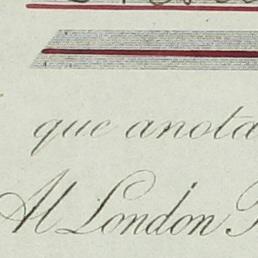 que anota
Al London